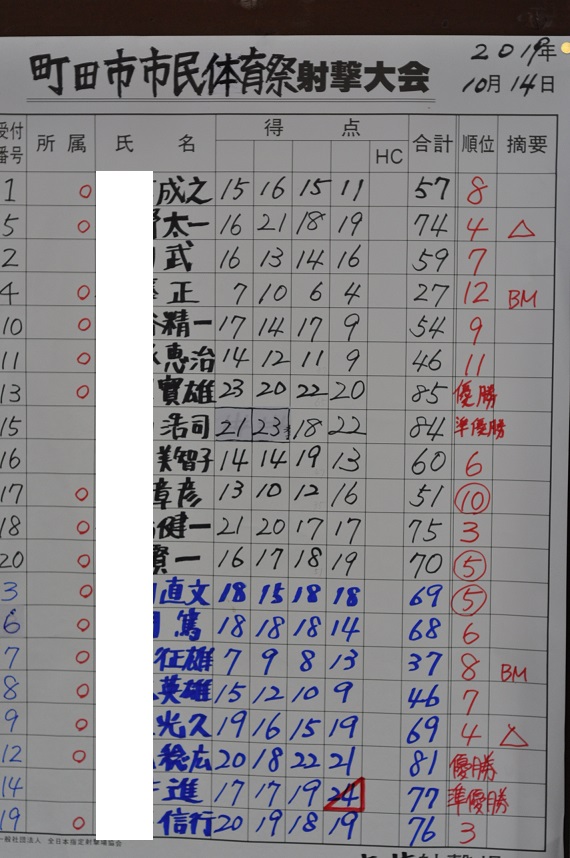 町田市市民体育祭射撃大会
2019年
10月14日
受付番号 所属 氏名 得点 HC 合計 順位 摘要
1 ○ 成之 15 16 15 11 57 8
5 ○ 太一 16 21 18 19 74 4 △
2 武 16 13 14 16 59 7
4 ○ 正 7 10 6 4 27 12 BM
10 ○ 精一 17 14 17 9 54 9
11 ○ 恵治 14 12 11 9 46 11
13 ○ 實雄 23 20 22 20 85 優勝
15 浩司 21 23 18 22 84 準優勝
16 美智子 14 14 19 13 60 6
17 ○ 章彦 13 10 12 16 51 10
18 ○ 健一 21 20 17 17 75 3
20 ○ 賢一 16 17 18 19 70 5
3 ○ 直文 18 15 18 18 69 5
6 ○ 篤 18 18 18 14 68 6
7 ○ 征雄 7 9 8 13 37 8 BM
8 ○ 英雄 15 12 10 9 46 7
9 ○ 光久 19 16 15 19 69 4 △
12 ○ 稔広 20 18 22 21 81 優勝
14 進 17 17 19 24 77 準優勝
19 ○ 信行 20 19 18 19 76 3
一般社団法人 全日本指定射撃場協会